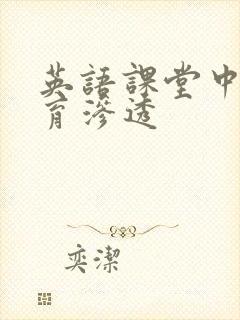 英語課堂中
育滲透
奕潔